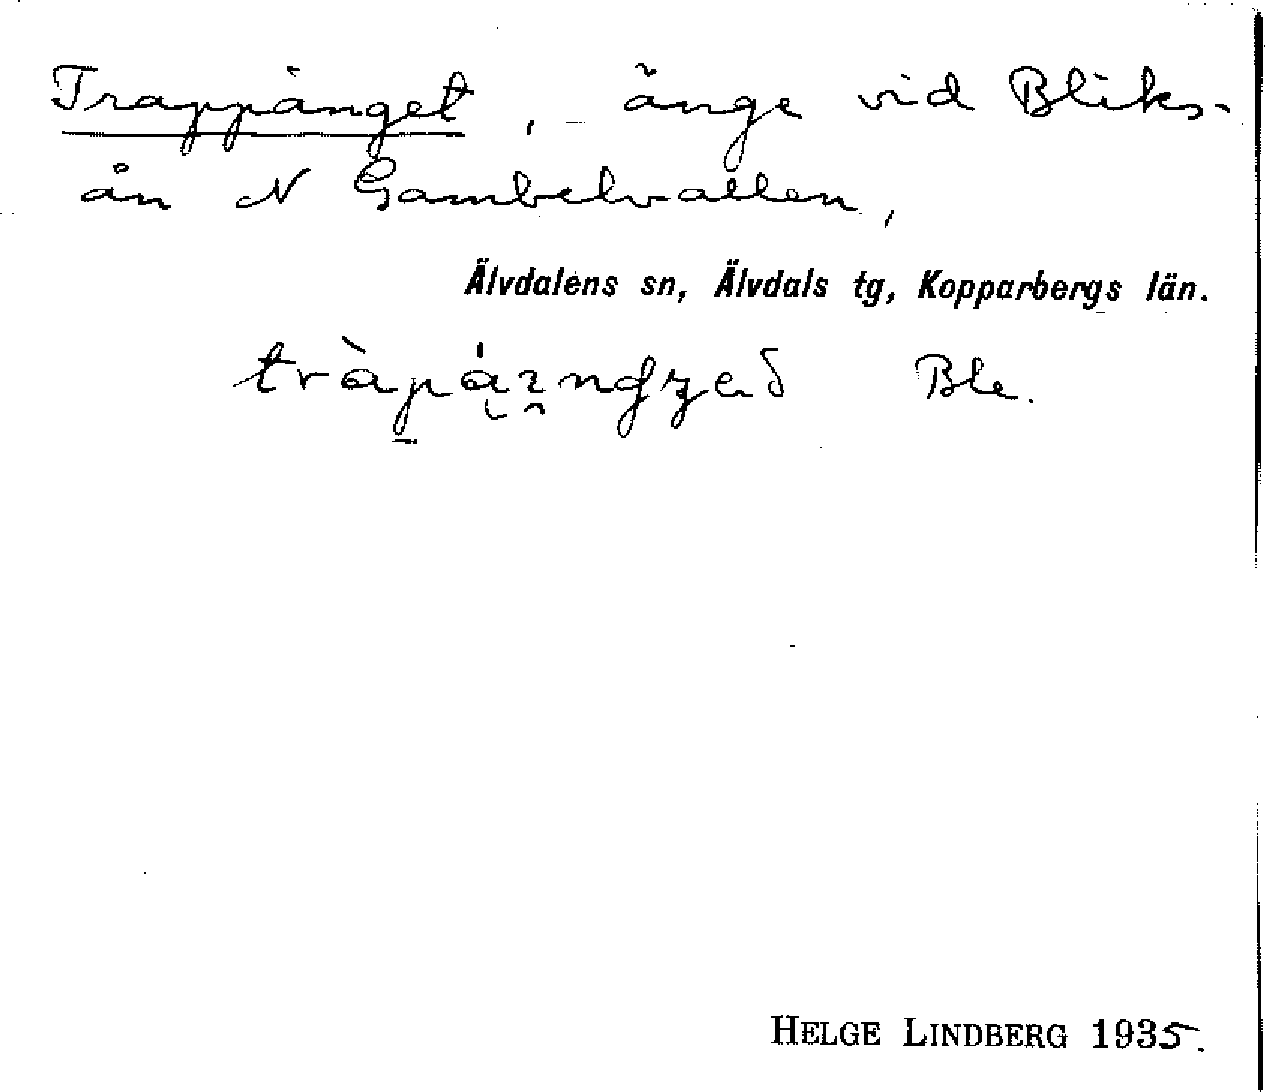 Trappänget, änge vid Bliks-
ån N Gambelvallen,
Älvdalens sn, Älvdals tg, Kopparbergs län.
Ble.
HELGE LINDBERG 1935.